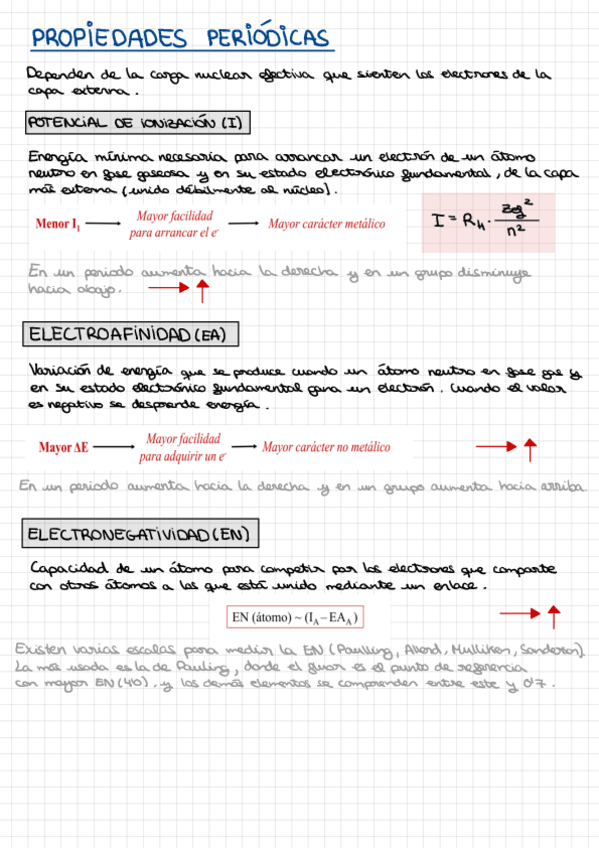 PROPIEDADES PERIÓDICAS
Dependen de la carga nuclear efectiva que sienten los electrones de la
capa externa.
POTENCIAL DE IONIZACIÓN (I)
Energía mínima necesaria para arrancar un electrón de un átomo
neutro en fase gaseosa y en su estado electrónico fundamental, de la capa
más externa (unido débilmente al núcleo).
Menor I₁ → Mayor facilidad para arrancar el e⁻ → Mayor carácter metálico
I = R_H · Zef² / n²
En un periodo aumenta hacia la derecha y en un grupo disminuye
hacia abajo. → ↑
ELECTROAFINIDAD (EA)
Variación de energía que se produce cuando un átomo neutro en fase gas y
en su estado electrónico fundamental gana un electrón. Cuando el valor
es negativo se desprende energía.
Mayor ΔE → Mayor facilidad para adquirir un e⁻ → Mayor carácter no metálico → ↑
En un periodo aumenta hacia la derecha y en un grupo aumenta hacia arriba.
ELECTRONEGATIVIDAD (EN)
Capacidad de un átomo para competir por los electrones que comparte
con otros átomos a los que está unido mediante un enlace.
EN (átomo) ~ (I_A – EA_A) → ↑
Existen varias escalas para medir la EN (Paulling, Allerd, Mulliken, Sanderson).
La más usada es la de Pauling, donde el fluor es el punto de referencia
con mayor EN (4'0). y los demás elementos se comprenden entre este y 0'7.